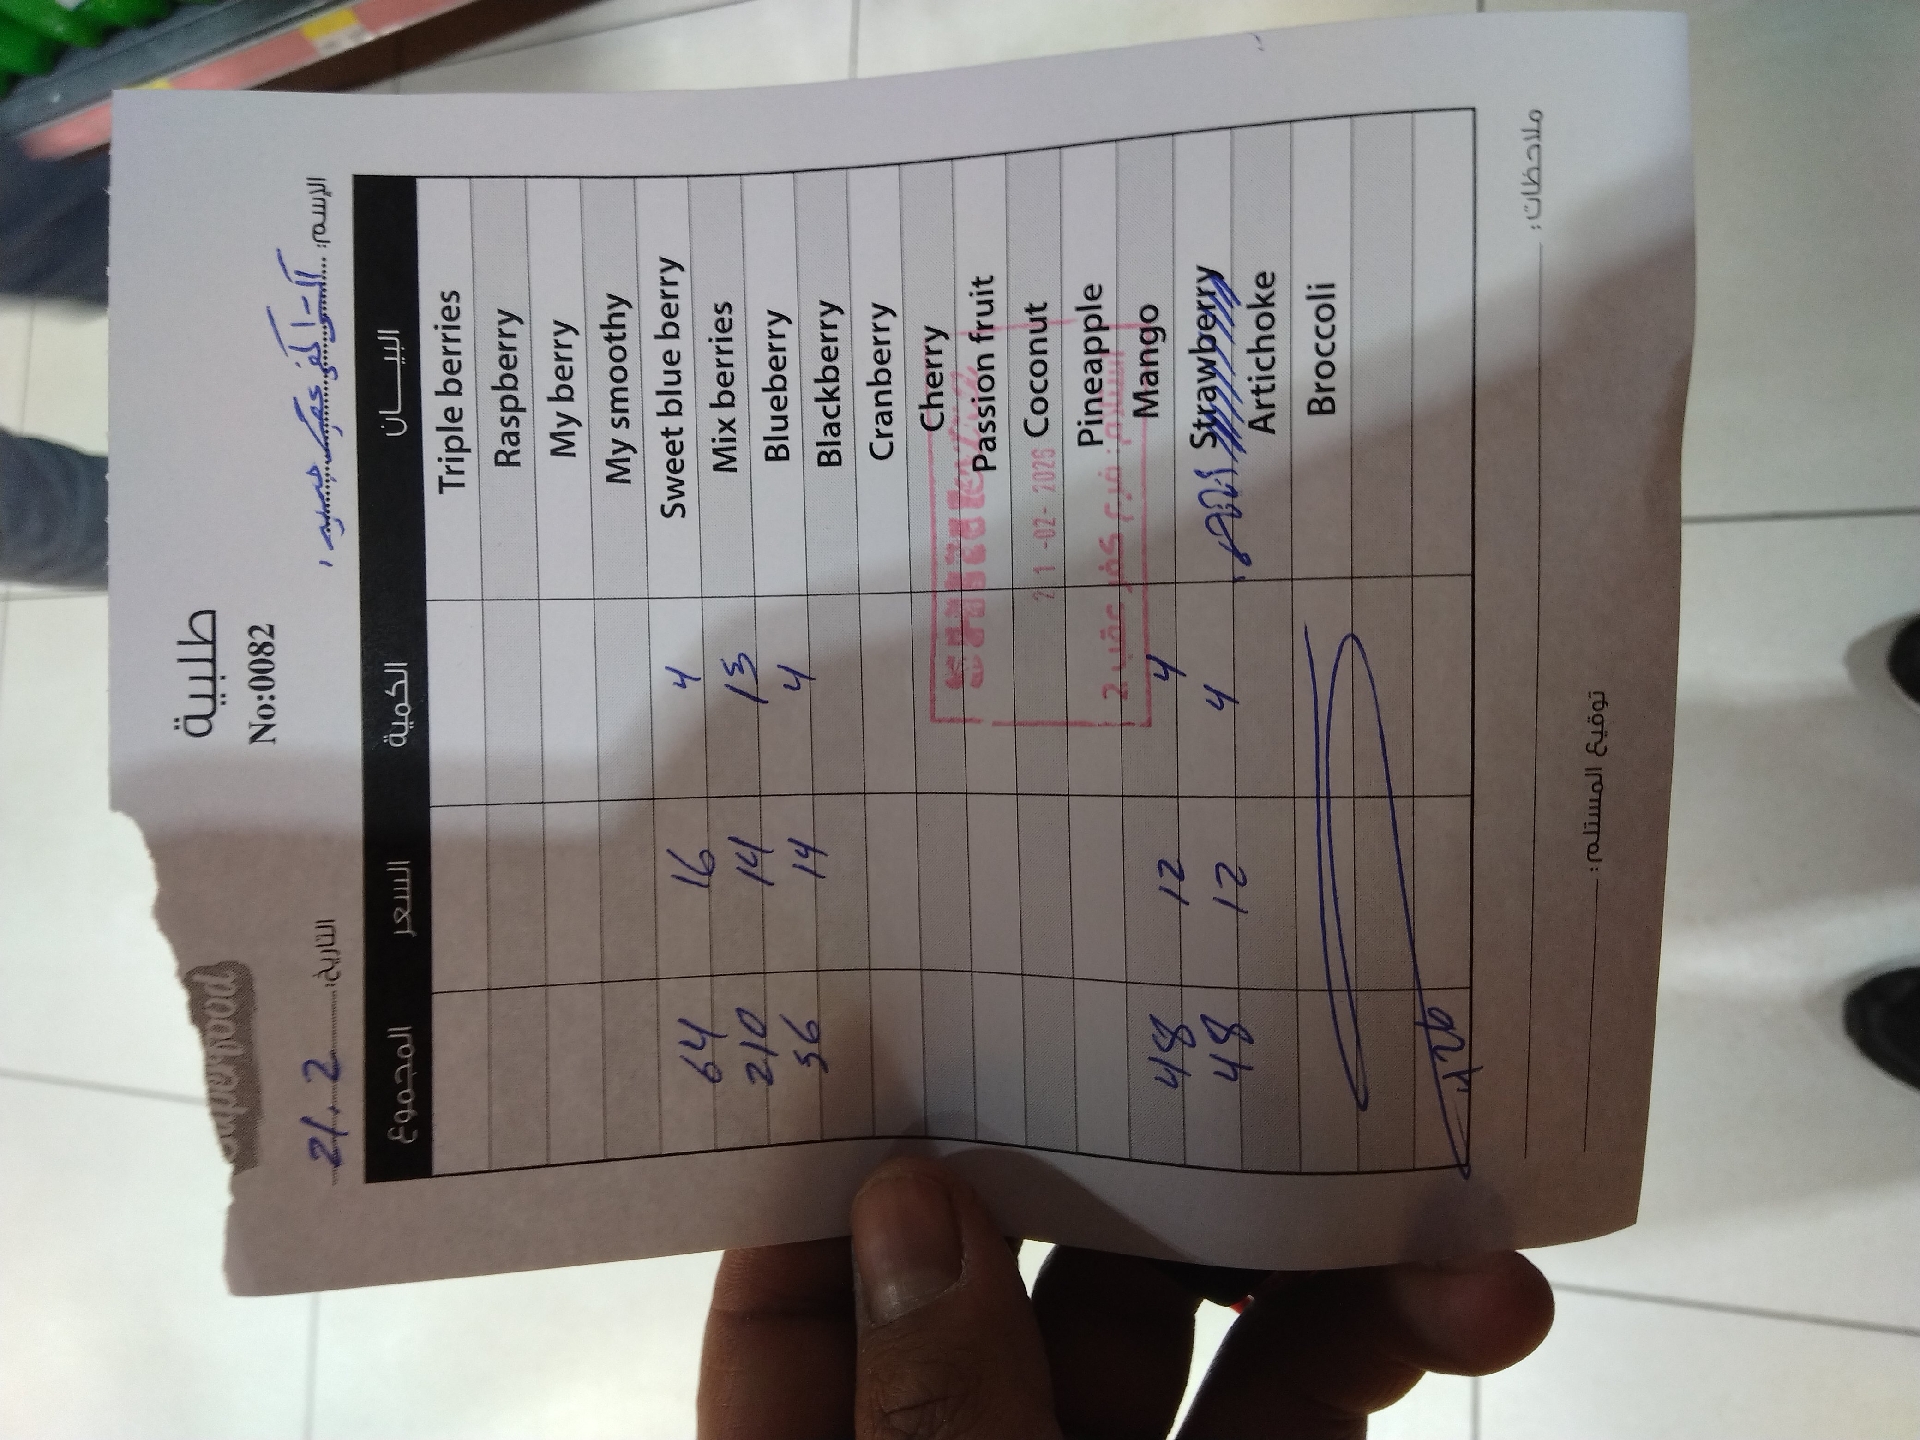 طلبية
No:0082
التاريخ: 21.2
الإسم:
البيـــان الكمية السعر المجموع
Triple berries
Raspberry
My berry
My smoothy
Sweet blue berry 4 16 64
Mix berries 15 14 210
Blueberry 4 14 56
Blackberry
Cranberry
Cherry
Passion fruit
Coconut
Pineapple
Mango 4 12 48
Strawberry 4 12 48
Artichoke
Broccoli
426
21-02-2026
السلام: فرع كفر عقب 2
ملاحظات:
توقيع المستلم: